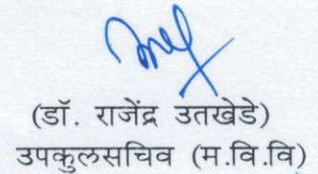 (डॉ. राजेंद्र उतखेडे)
उपकुलसचिव (म.वि.वि)